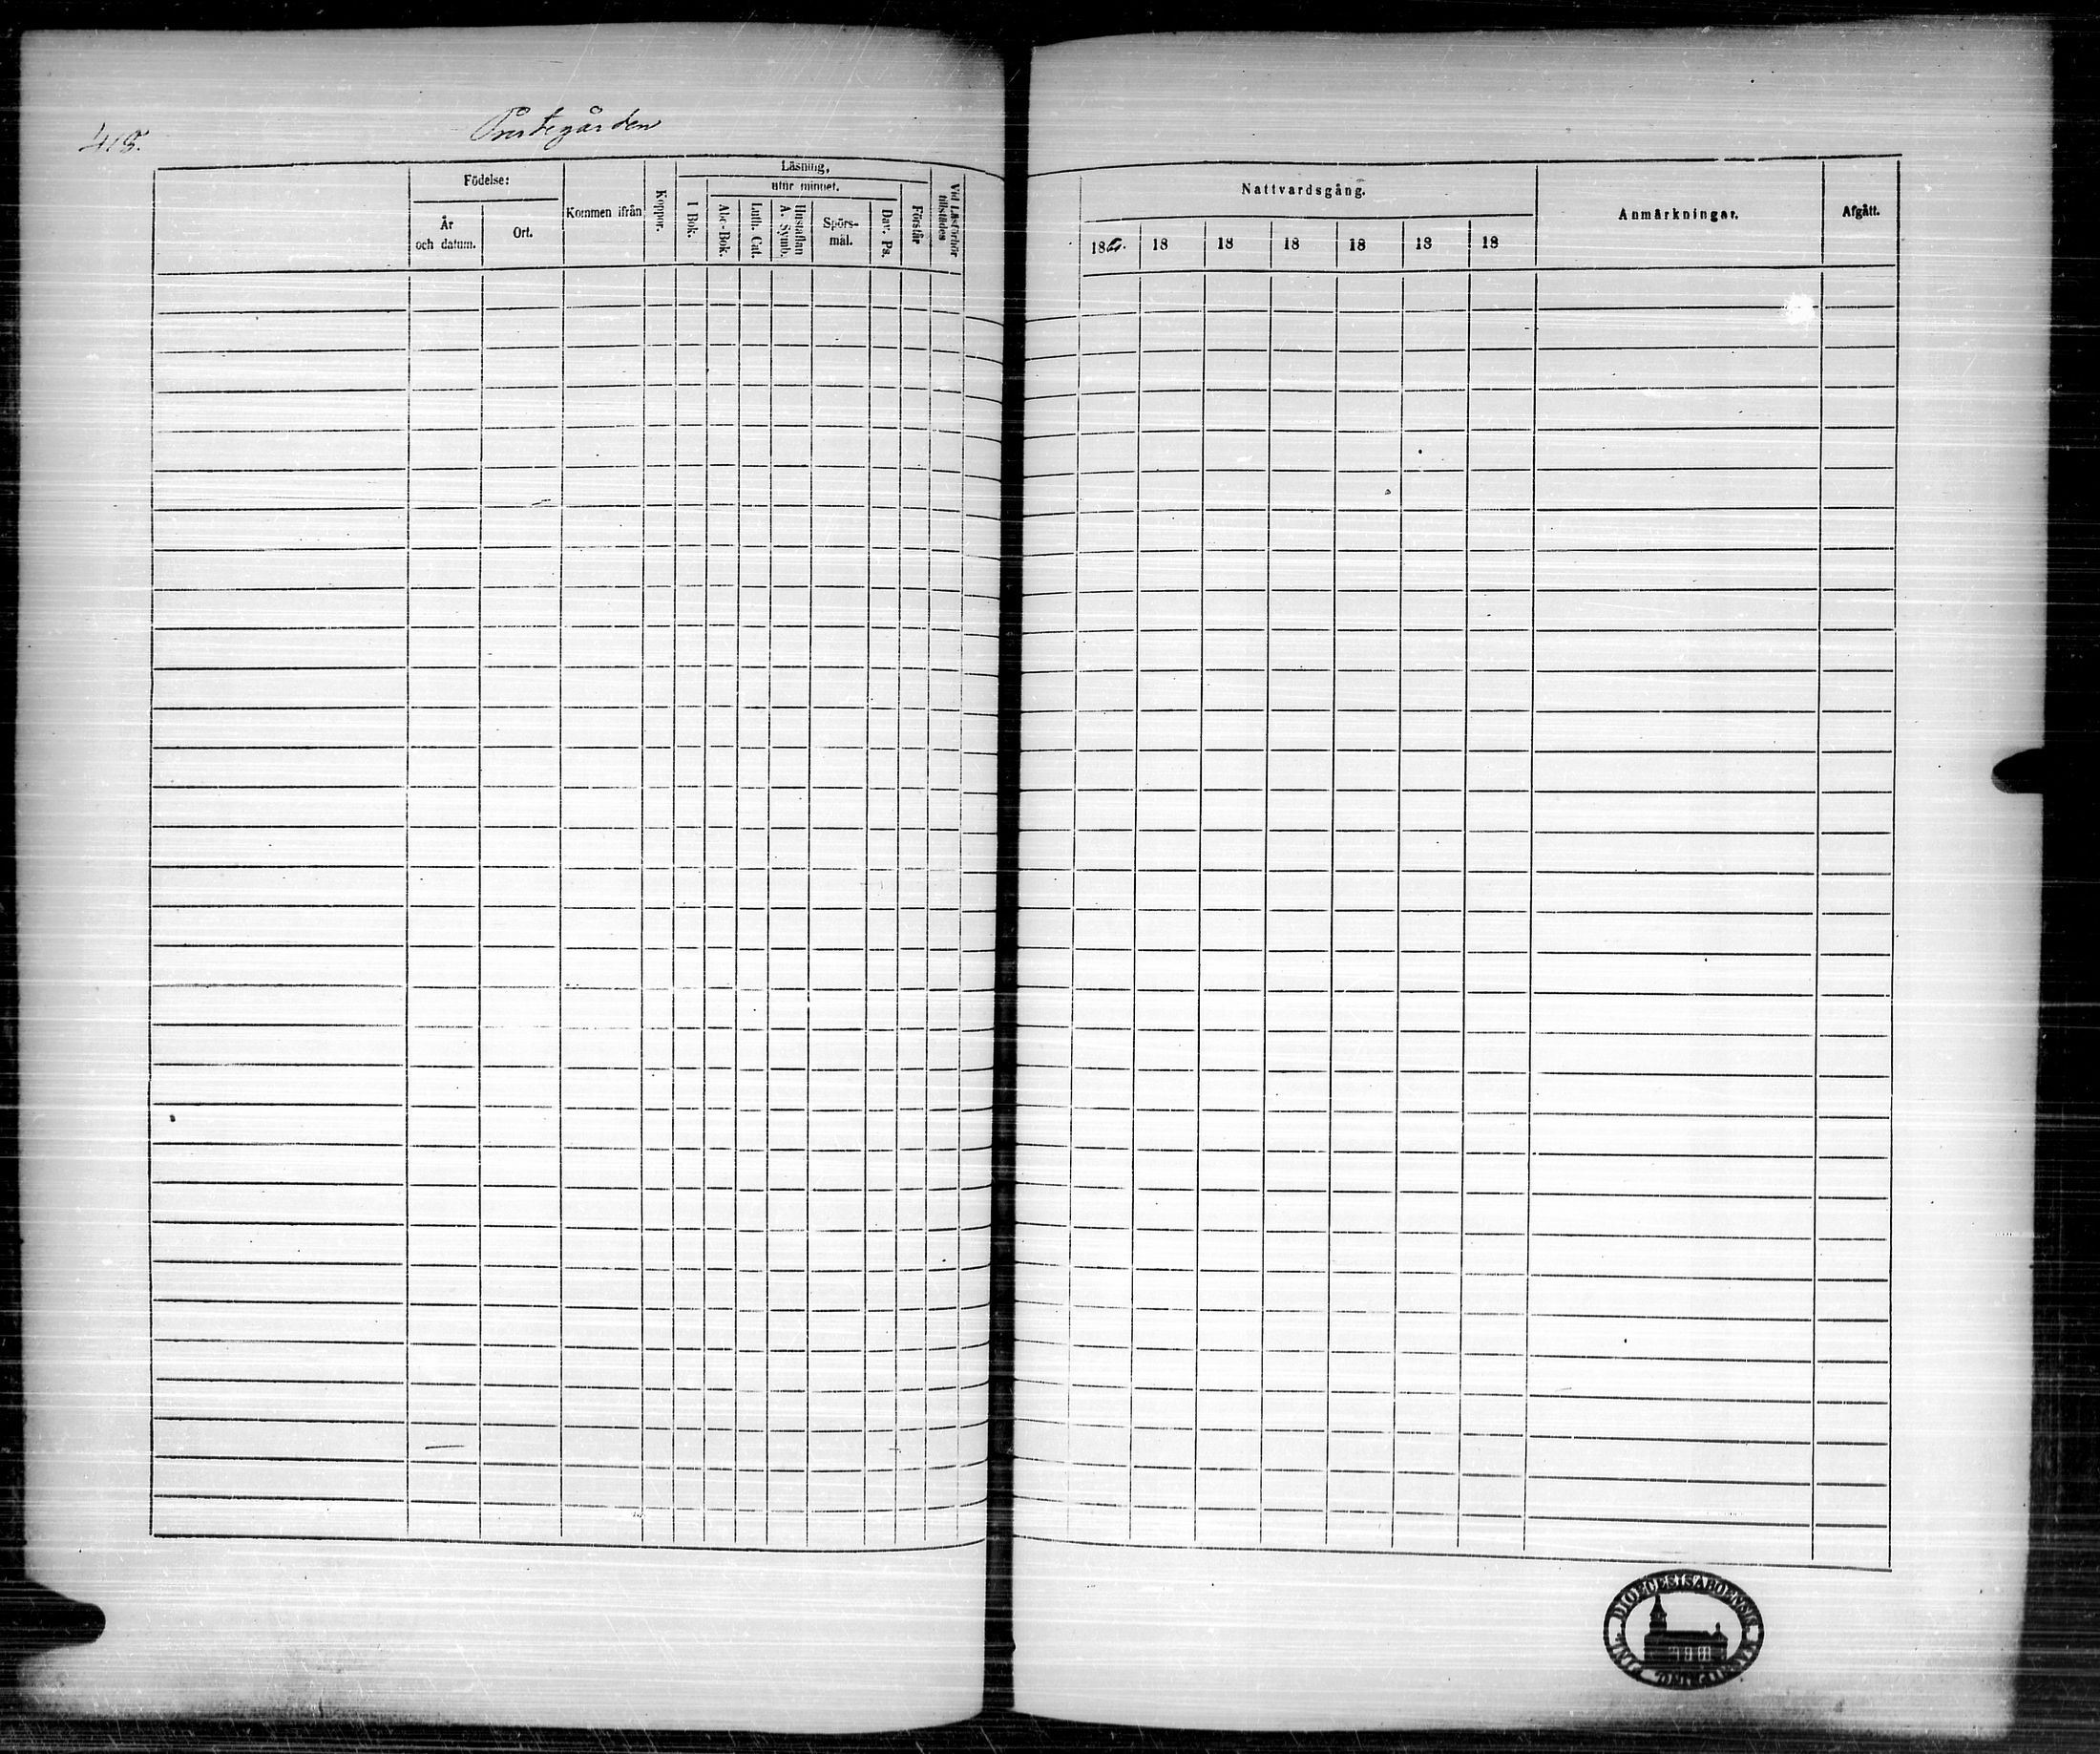 418.
Prestegården
Födelse:
År
och datum.
Ort.
Kommen ifrån
Koppor.
Läsning,
utur minnet.
I Bok.
Abc-Bok.
Luth. Cat.
Hustaflan
A. Symb.
Spörs-
mål.
Dav. Ps.
Förstår
Vid Läsförhör
tillstädes
Nattvardsgång.
18 18 18 18 18 18 18
Anmärkningar.
Afgått.
DIOECESIS ABOENSIS